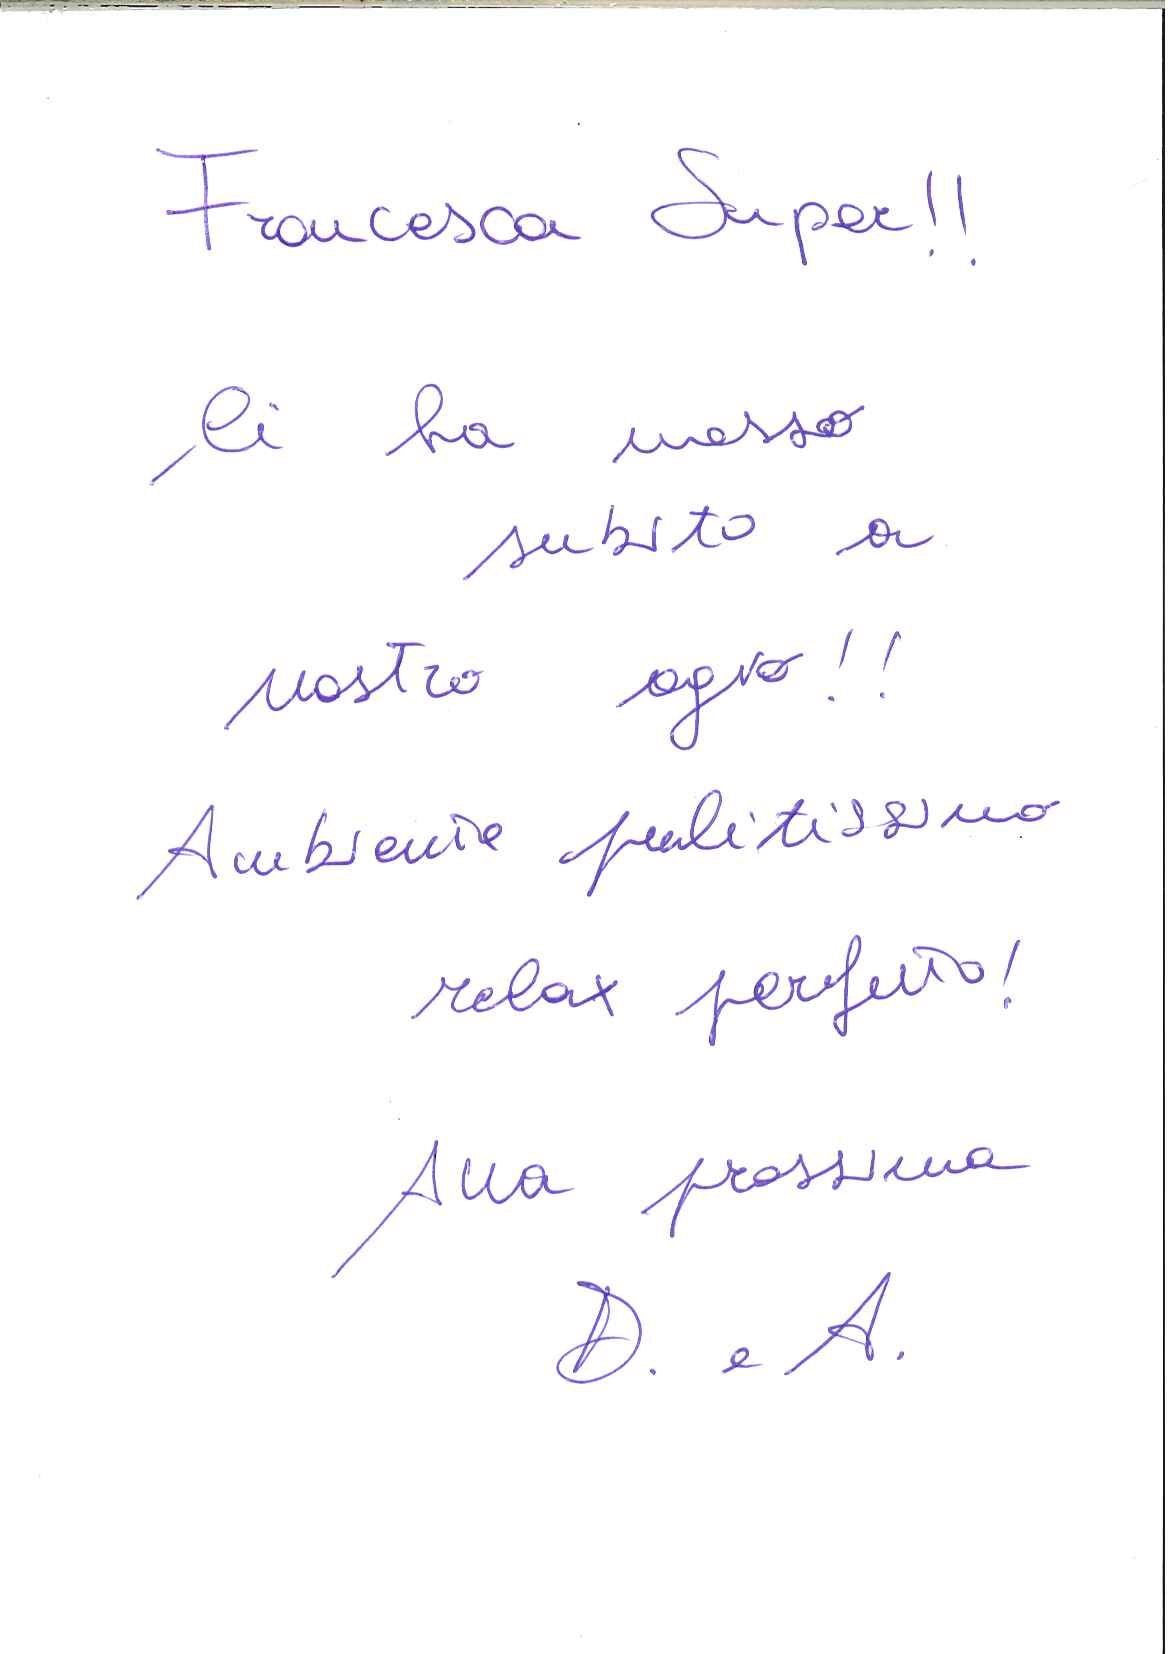 Francesca Super!!
Ci ha messo
subito a
nostro agio!!
Ambiente pulitissimo
relax perfetto!
Alla prossima
D. e A.